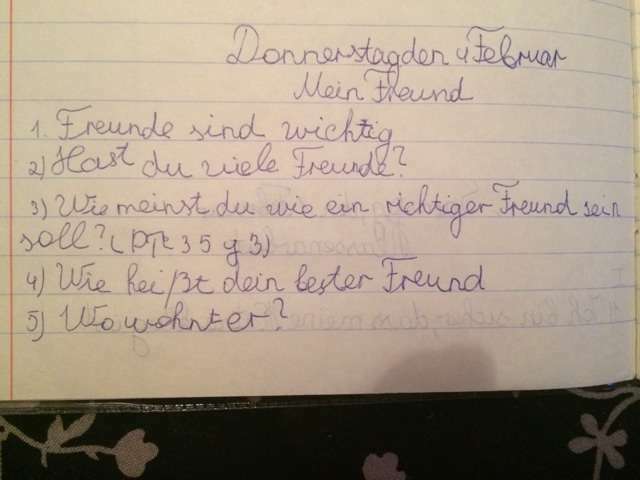 Donnerstag den 4 Februar
Mein Freund
1. Freunde sind wichtig
2) Hast du viele Freunde?
3) Wie meinst du wie ein richtiger Freund sein
soll? ( S 35 y 3)
4) Wie heißt dein bester Freund
5) Wo wohnt er?